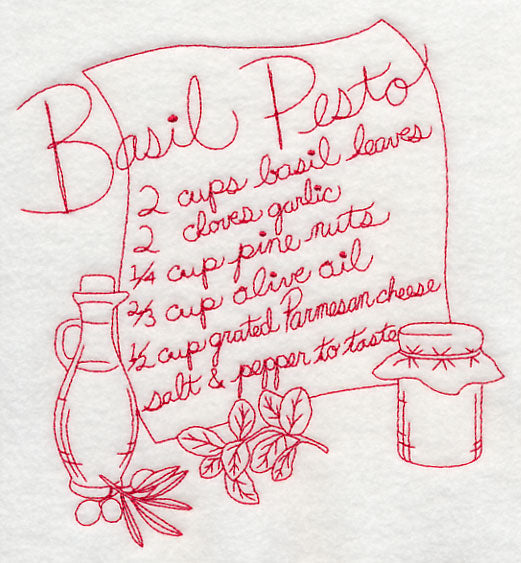 Basil Pesto
2 cups basil leaves
2 cloves garlic
1/4 cup pine nuts
2/3 cup olive oil
1/2 cup grated Parmesan cheese
salt & pepper to taste